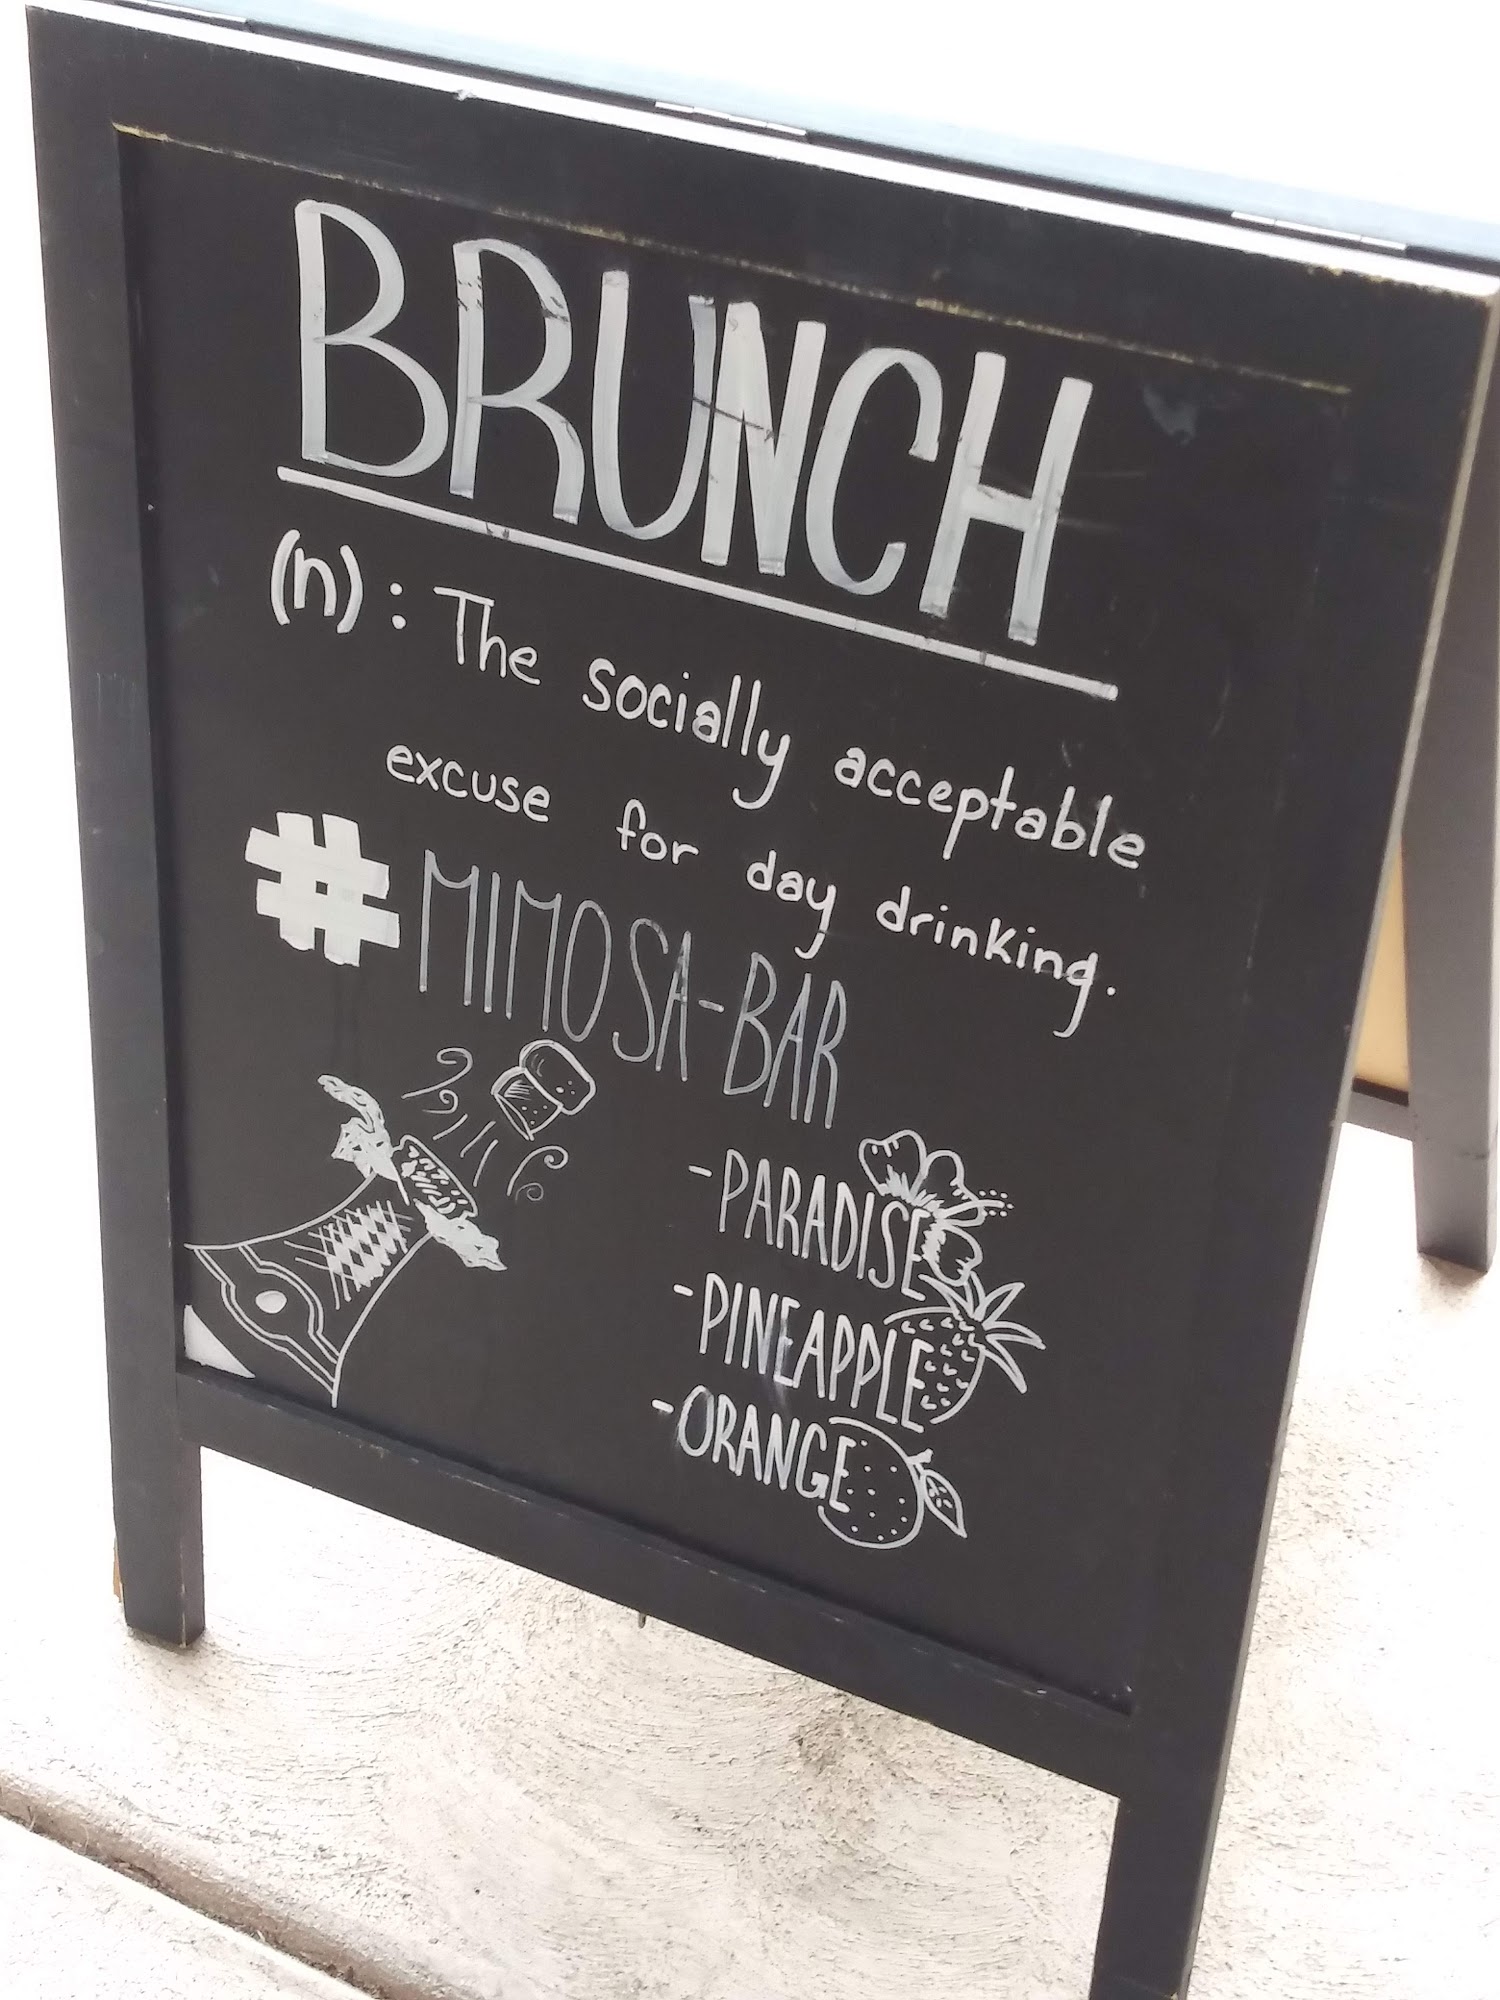 BRUNCH
(n): The socially acceptable
excuse for day drinking.
#MIMOSA-BAR
-PARADISE
-PINEAPPLE
-ORANGE